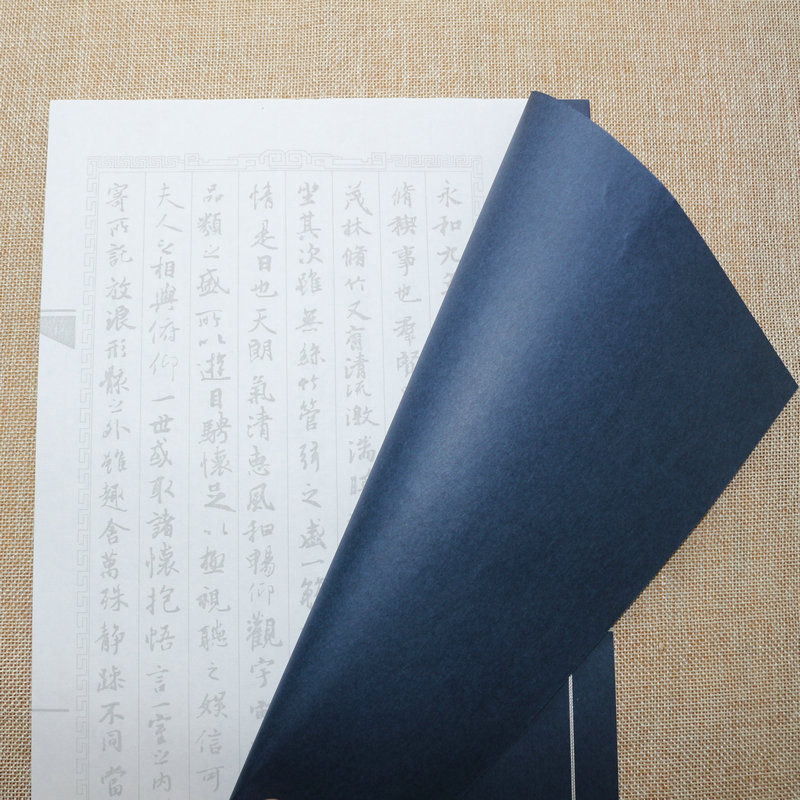 永和九
脩稧事也羣賢
茂林脩竹又有清流激湍
坐其次雖無絲竹管弦之盛一觴
情是日也天朗氣清惠風和暢仰觀宇
品類之盛所以遊目騁懷足以極視聽之娛信可
夫人之相與俯仰一世或取諸懷抱悟言一室之内
寄所託放浪形骸之外雖趣舍萬殊静躁不同當